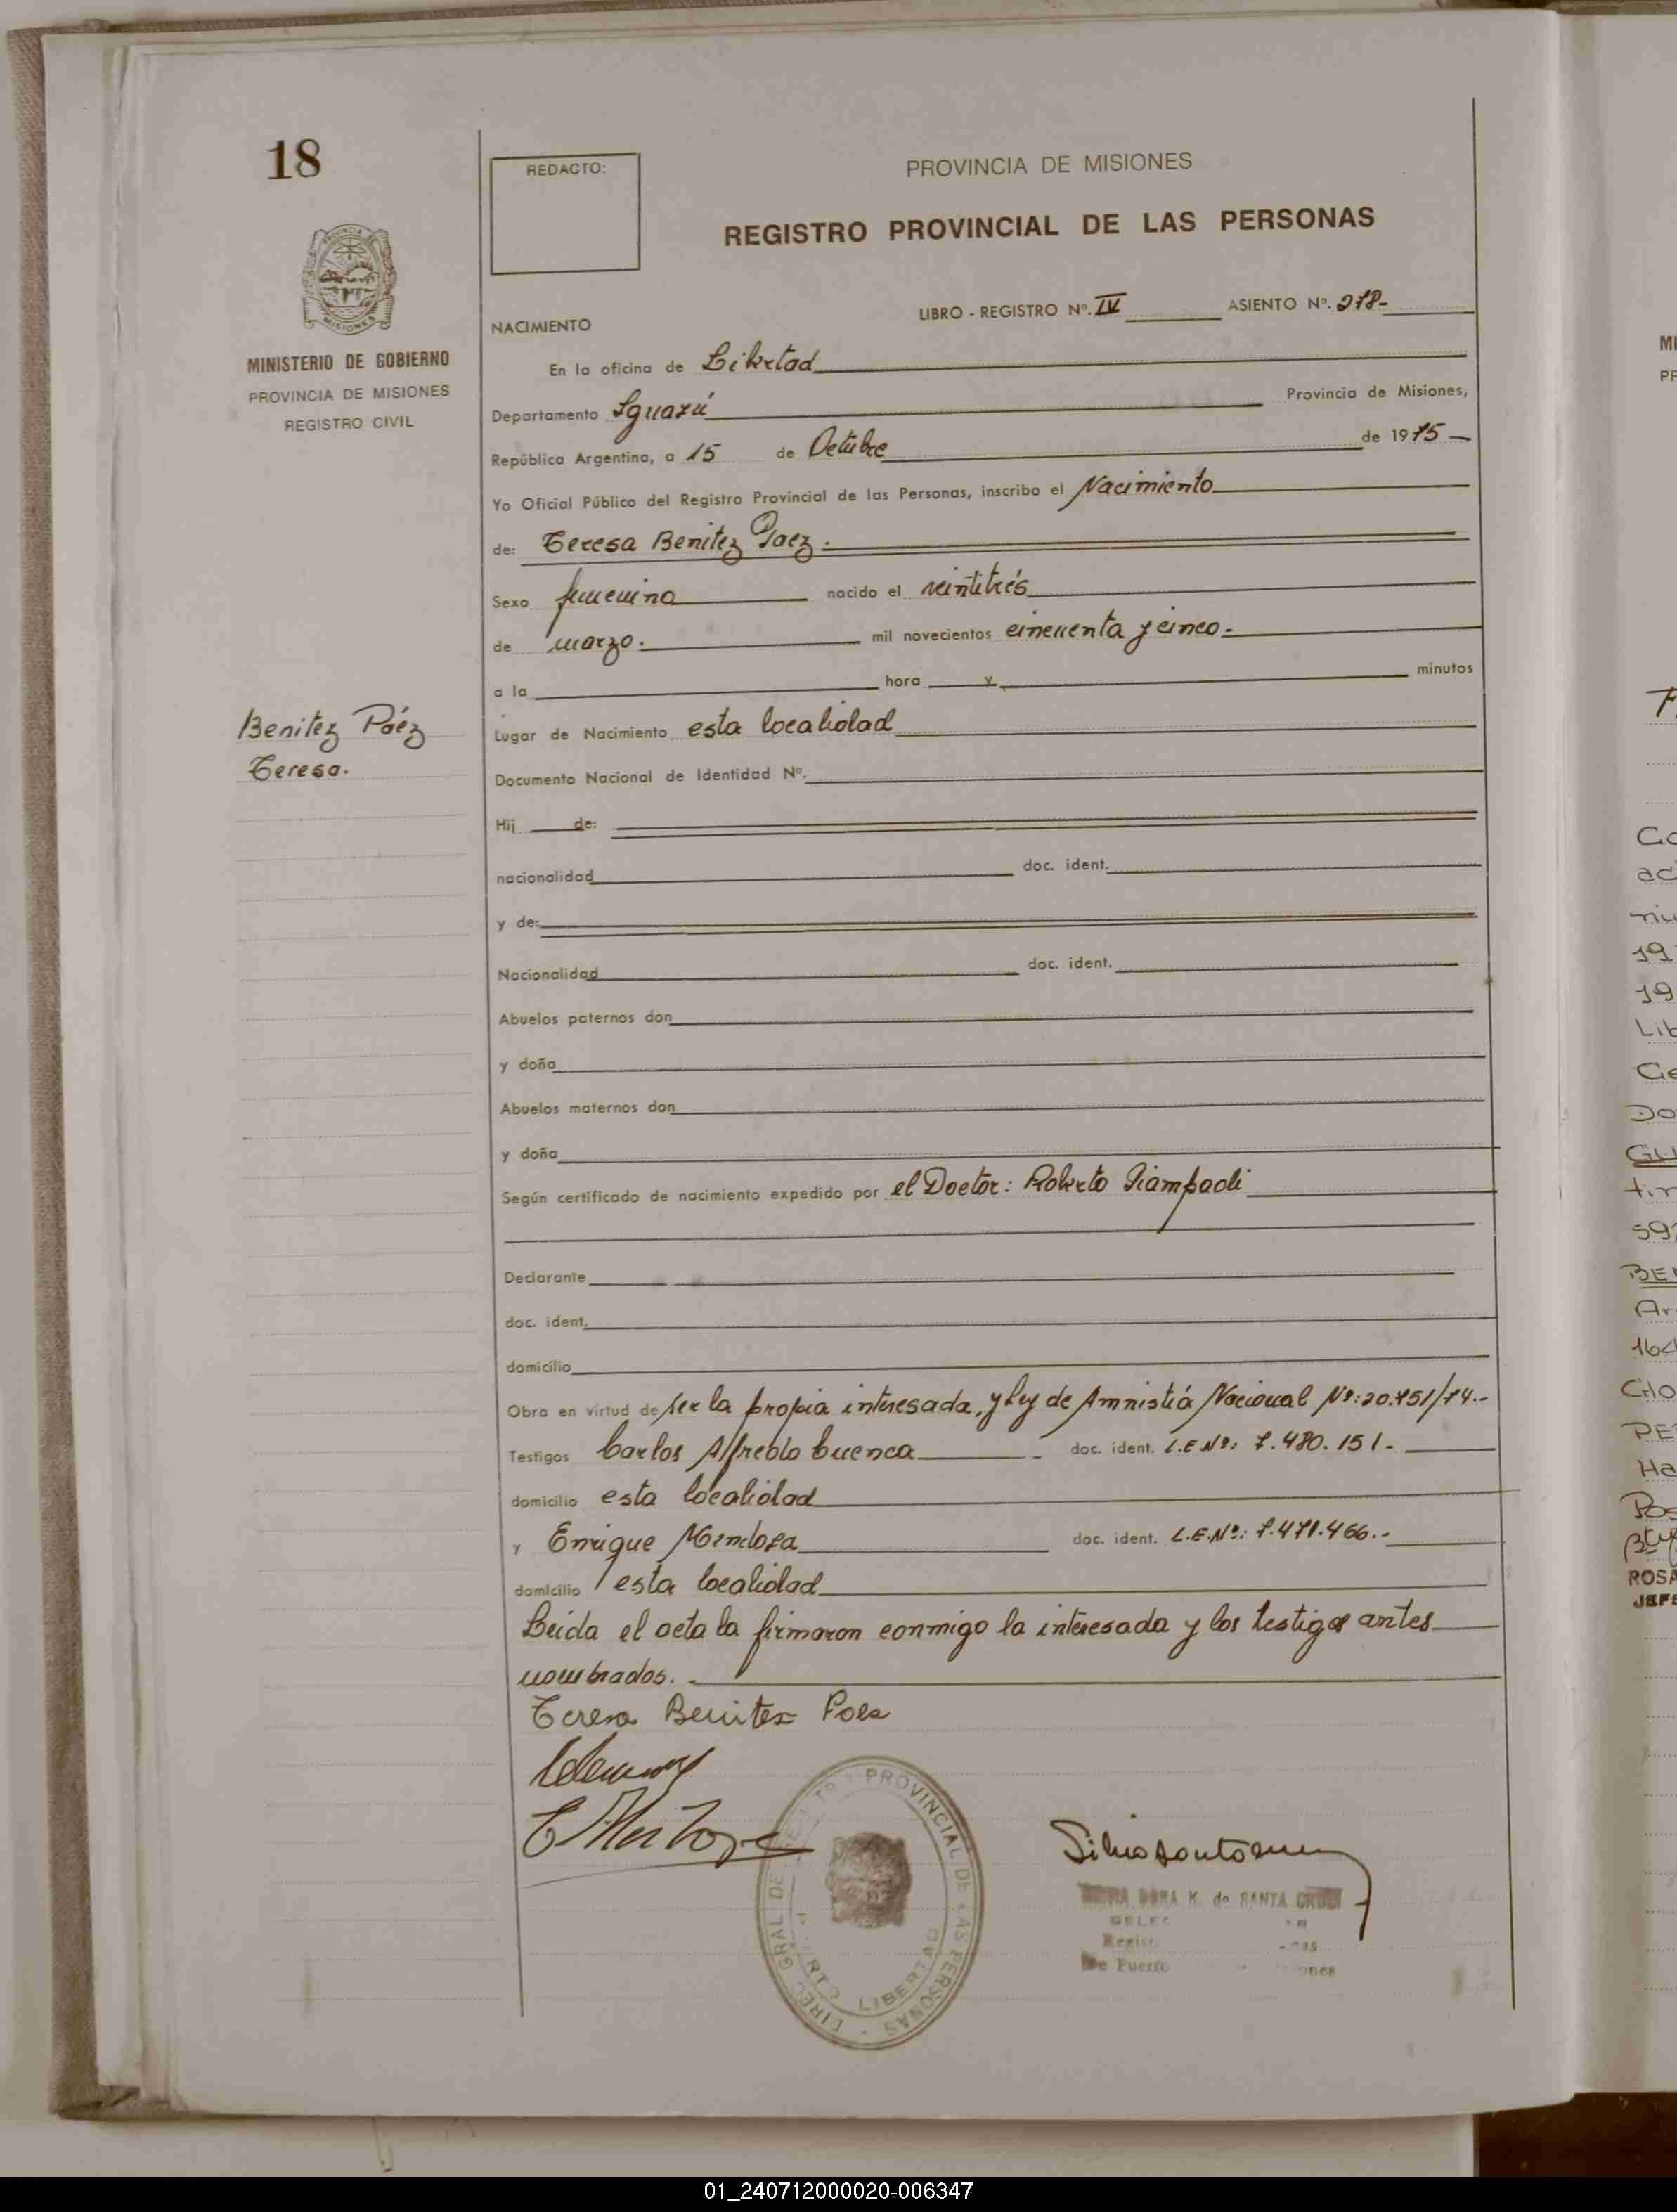 18
PROVINCIA DE MISIONES
MINISTERIO DE GOBIERNO
PROVINCIA DE MISIONES
REGISTRO CIVIL
Benitez Páez
Teresa.
REDACTO:
PROVINCIA DE MISIONES
REGISTRO PROVINCIAL DE LAS PERSONAS
NACIMIENTO
LIBRO - REGISTRO Nº. IV ASIENTO Nº. 278-
En la oficina de Libertad
Departamento Iguazú Provincia de Misiones,
República Argentina, a 15 de Octubre de 1975
Yo Oficial Público del Registro Provincial de las Personas, inscribo el Nacimiento
de: Teresa Benitez Paez.
Sexo femenino nacido el veintitrés
de marzo. mil novecientos cincuenta y cinco.
a la hora y minutos
Lugar de Nacimiento esta localidad
Documento Nacional de Identidad Nº.
Hij de:
nacionalidad doc. ident.
y de:
Nacionalidad doc. ident.
Abuelos paternos don
y doña
Abuelos maternos don
y doña
Según certificado de nacimiento expedido por el Doctor: Roberto Giampaoli
Declarante
doc. ident.
domicilio
Obra en virtud de ser la propia interesada, y Ley de Amnistía Nacional Nº: 20.751/74.-
Testigos Carlos Alfredo Cuenca doc. ident. L.E Nº: 7.480.151-
domicilio esta localidad
y Enrique Mendoza doc. ident. L.E.Nº: 7.471.466.-
domicilio esta localidad
Leida el acta la firmaron conmigo la interesada y los testigos antes
nombrados.
Teresa Benitez Paez
PROVINCIAL DE LAS PERSONAS
DIREC. GRAL DE
LIBERTAD
DORA K. de SANTA CRUZ
De Puerto
01_240712000020-006347